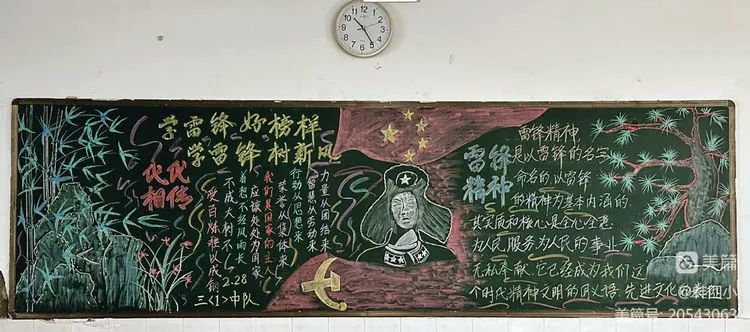 学雷锋好榜样
学雷锋树新风
代代
相传
力量从团结来
智慧从劳动来
行动从思想来
荣誉从集体来
我们是国家的主人
应该处处为国家
着想不经风雨长
不成大树不
受百炼难以成钢
2.28
三<1>中队
雷锋
精神
雷锋精神
是以雷锋的名字
命名的以雷锋
的精神为基本内涵的
其实质和核心是全心全意
为人民服务为人民的事业
无私奉献,它已经成为我们这
个时代精神文明的同义语 先进文化
美篇
@龚四小
美篇号: 20543063